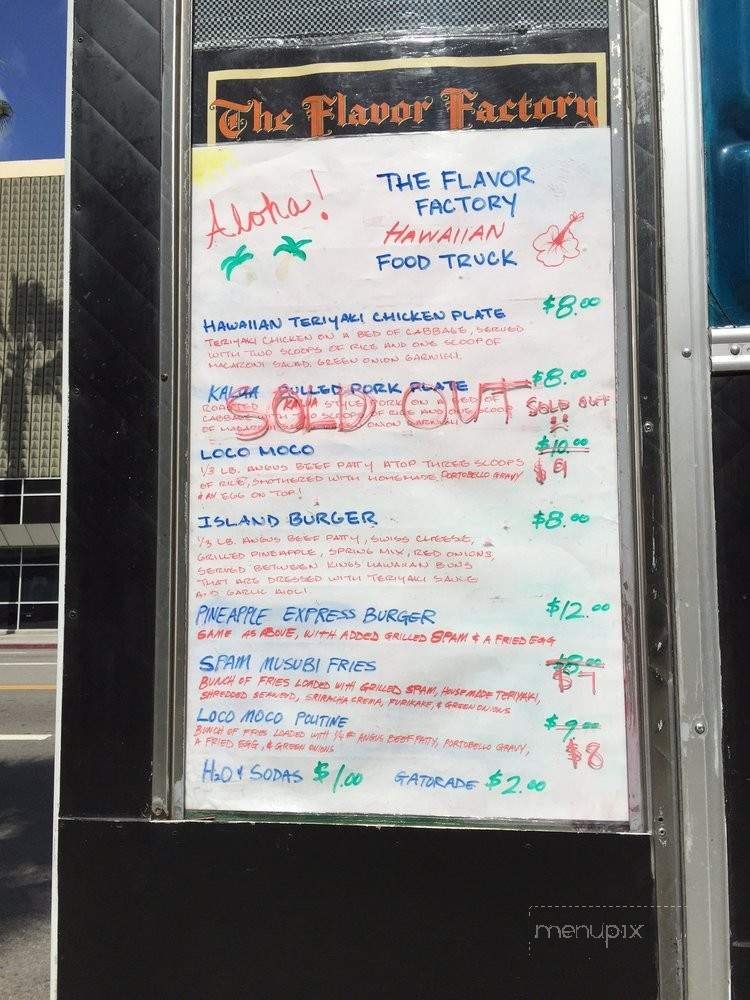 The Flavor Factory
Aloha!
THE FLAVOR
FACTORY
HAWAIIAN
FOOD TRUCK
HAWAIIAN TERIYAKI CHICKEN PLATE $8.00
TERIYAKI CHICKEN ON A BED OF CABBAGE, SERVED
WITH TWO SCOOPS OF RICE AND ONE SCOOP OF
MACARONI SALAD. GREEN ONION GARNISH.
KALUA PULLED PORK PLATE $8.00
ROASTED KALUA STYLE PORK ON A BED OF
CABBAGE WITH TWO SCOOPS OF RICE AND ONE SCOOP
OF ONION GARNISH
SOLD OUT
SOLD OUT
LOCO MOCO $10.00
$9
1/3 LB. ANGUS BEEF PATTY ATOP THREE SCOOPS
OF RICE, SMOTHERED WITH HOMEMADE PORTOBELLO GRAVY
& AN EGG ON TOP!
ISLAND BURGER $8.00
1/3 LB. ANGUS BEEF PATTY, SWISS CHEESE,
GRILLED PINEAPPLE, SPRING MIX, RED ONIONS,
SERVED BETWEEN KINGS HAWAIIAN BUNS
THAT ARE DRESSED WITH TERIYAKI SAUCE
AND GARLIC AIOLI
PINEAPPLE EXPRESS BURGER $12.00
SAME AS ABOVE, WITH ADDED GRILLED SPAM & A FRIED EGG
SPAM MUSUBI FRIES $8.00
$7
BUNCH OF FRIES LOADED WITH GRILLED SPAM, HOUSEMADE TERIYAKI,
SHREDDED SEAWEED, SRIRACHA CREMA, FURIKAKE, & GREEN ONIONS
LOCO MOCO POUTINE $9.00
$8
BUNCH OF FRIES LOADED WITH 1/4 # ANGUS BEEF PATTY, PORTOBELLO GRAVY,
A FRIED EGG, & GREEN ONIONS
H2O & SODAS $1.00 GATORADE $2.00
menupix